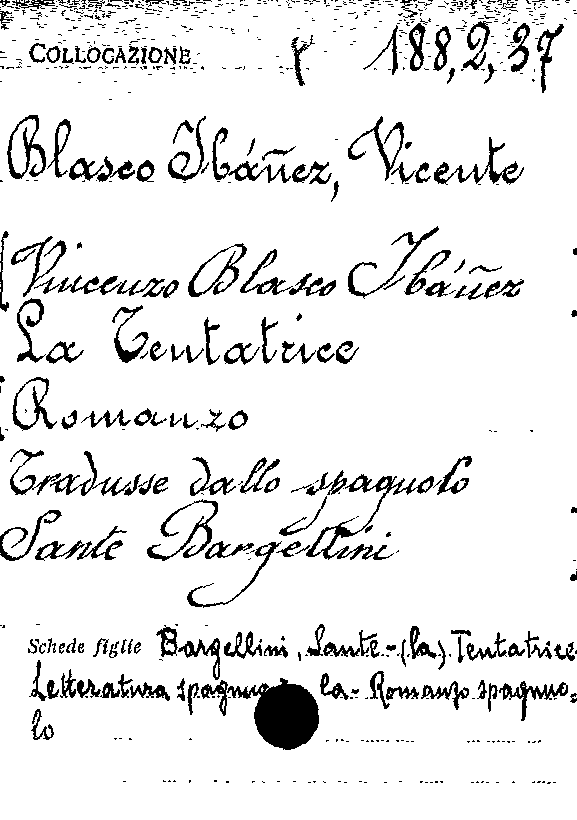 COLLOCAZIONE 188,2,37
Blasco Ibáñez, Vicente
Vincenzo Blasco Ibáñez
La Tentatrice
Romanzo
Tradusse dallo spagnolo
Sante Bargellini
Schede figlie Bargellini, Sante - (la) Tentatrice
Letteratura spagnuo la - Romanzo spagnuo=
lo